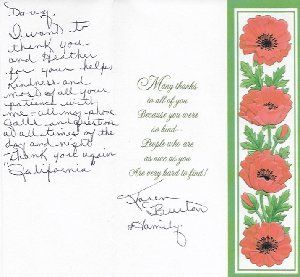 I want to
thank you
and Heather
for your helps
kindness and
most of all your
patience with
me - all my phone
calls and questions
at all times of the
day and night
Thank you again
California
Many thanks
to all of you
Because you were
so kind-
People who are
as nice as you
Are very hard to find!
Karen
Burton
& Family